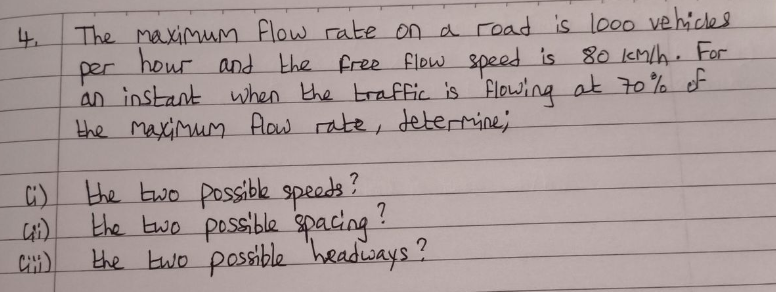 4. The maximum flow rate on a road is 1000 vehicles
per hour and the free flow speed is 80 km/h. For
an instant when the traffic is flowing at 70% of
the maximum flow rate, determine;
(i) the two possible speeds?
(ii) the two possible spacing?
(iii) the two possible headways?